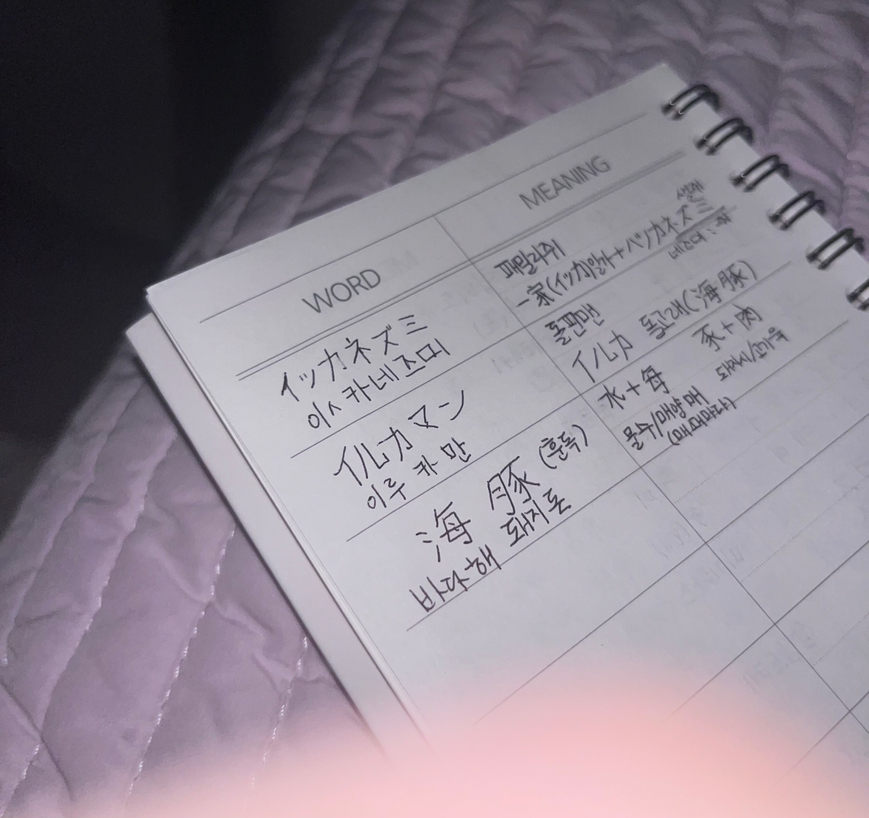 WORD
MEANING
イッカネズミ
이ㅅ카네즈미
패밀리쥐
一家(イッカ)일가+ハツカネズミ
イルカマン
이루카만
돌핀맨
イルカ 돌고래(海豚)
海豚(훈독)
바다해 돼지돈
水+每 豕+肉
물수/매양매 돼지시/고기육